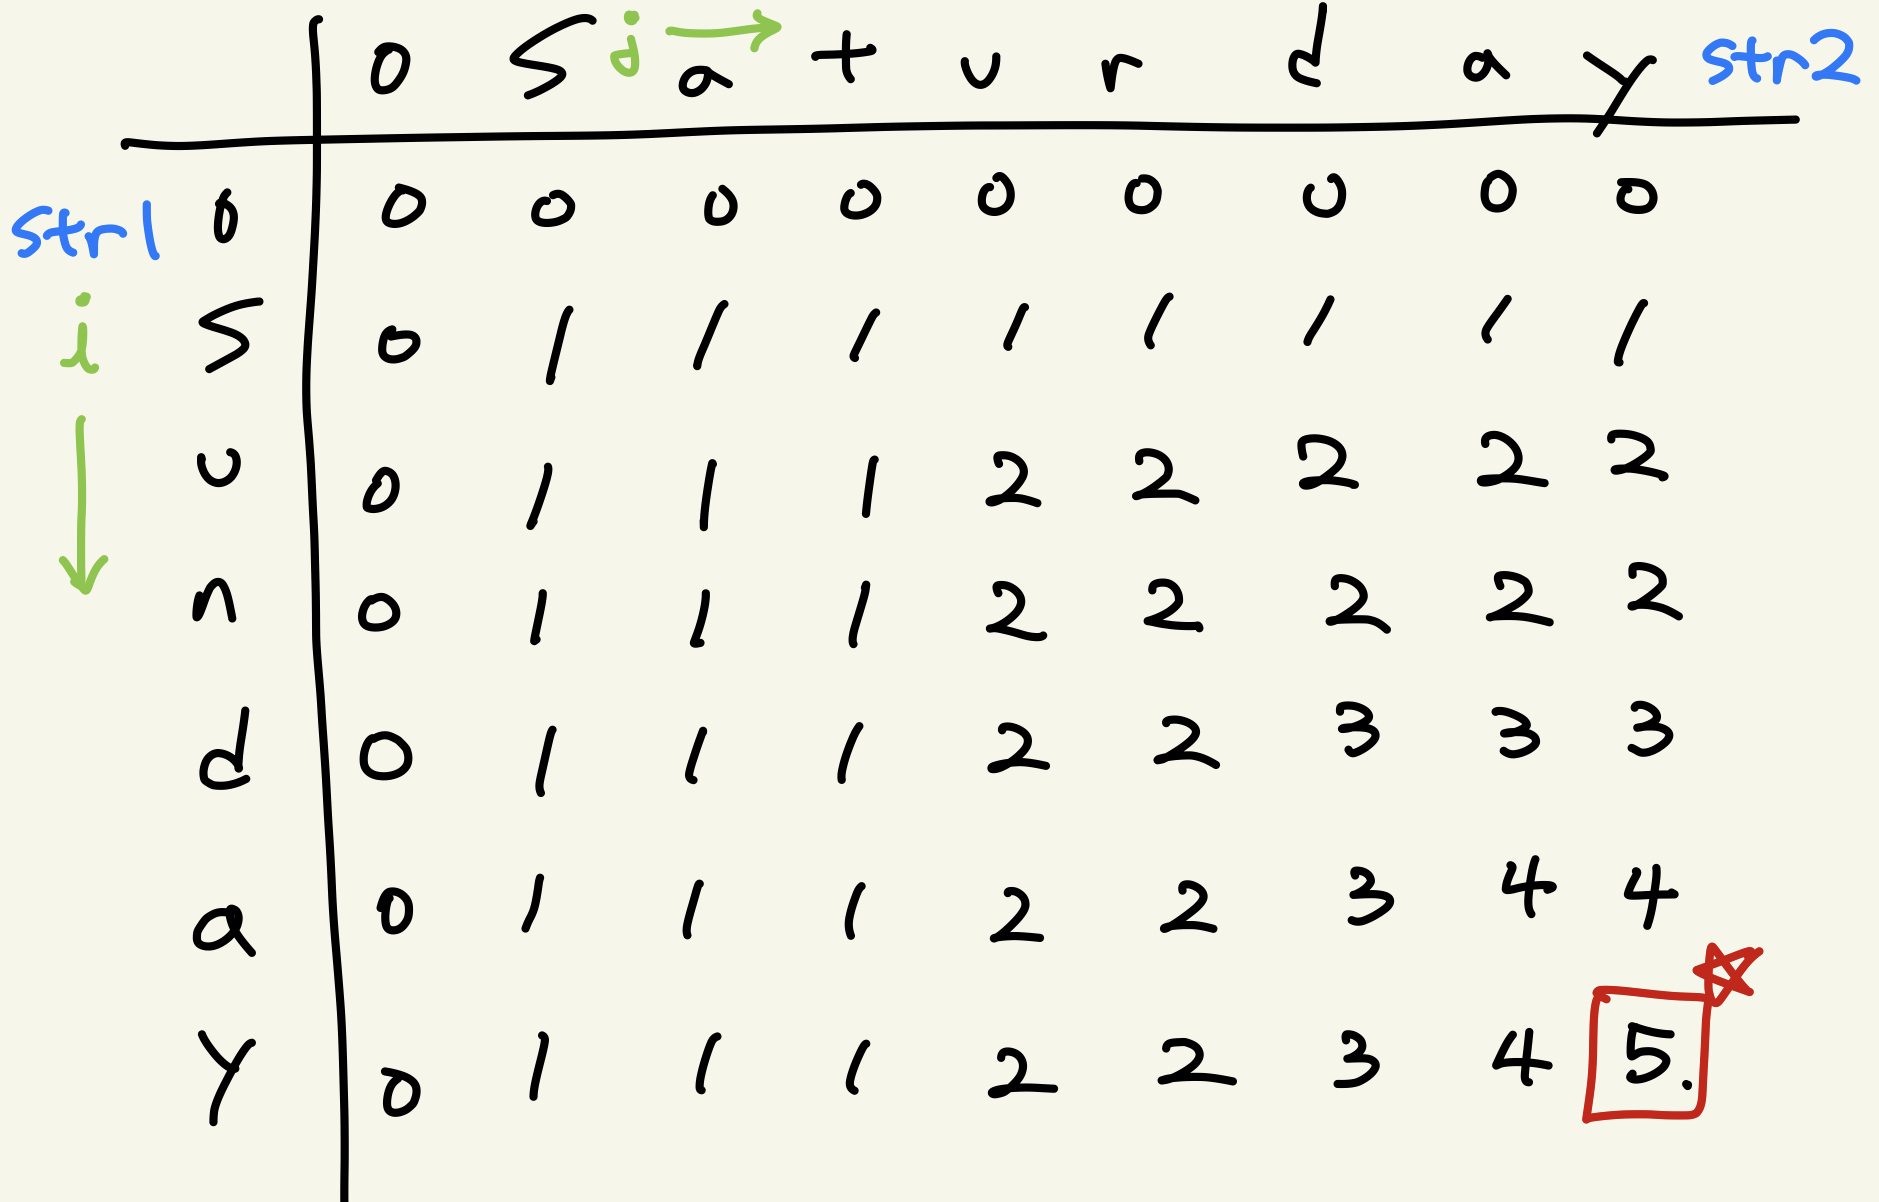 0 S j → a t u r d a y str2
str1 0 0 0 0 0 0 0 0 0 0
i S 0 1 1 1 1 1 1 1 1
u 0 1 1 1 2 2 2 2 2
n 0 1 1 1 2 2 2 2 2
d 0 1 1 1 2 2 3 3 3
a 0 1 1 1 2 2 3 4 4
y 0 1 1 1 2 2 3 4 5.